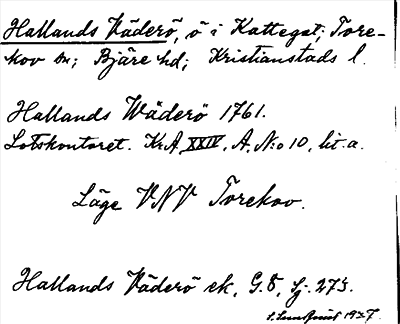 Hallands Väderö, ö i Kattegat; Tore-
kov sn; Bjäre hd; Kristianstads l.
Hallands Wäderö 1761.
Lotskontoret. Kr.A. XXIV, A, N:o 10, lit. a.
Läge VNV Torekov.
Hallands Väderö ek. G. 8, Sj. 273.
S. Lundquist 1927.